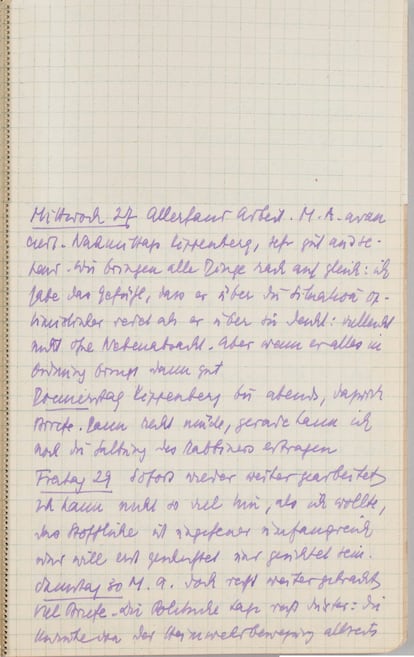 Mittwoch 27 Allerhand Arbeit. M. A. avan
ciert. Nachmittags Kippenberg, sehr gut ausse-
hend. Wir bringen alle Dinge rasch auf gleich: ich
habe das Gefühl, dass er über die Situation op-
timistischer redet als er über sie denkt: vielleicht
nicht ohne Nebenabsicht. Aber wenn er alles in
Ordnung bringt dann gut
Donnerstag Kippenberg bis abends,
Briefe. Dann recht müde, gerade kann ich
noch die des Rabbiners ertragen
Freitag 29 Sofort wieder weiter gearbeitet,
ich kann nicht so viel tun, als ich wollte,
das Stoffliche ist ungeheuer umfangreich
und will erst und gesichtet sein.
Samstag 30 M. A. doch recht weitergebracht,
viel Briefe. Die Politische Lage recht düster: die
der Heimwehrbewegung